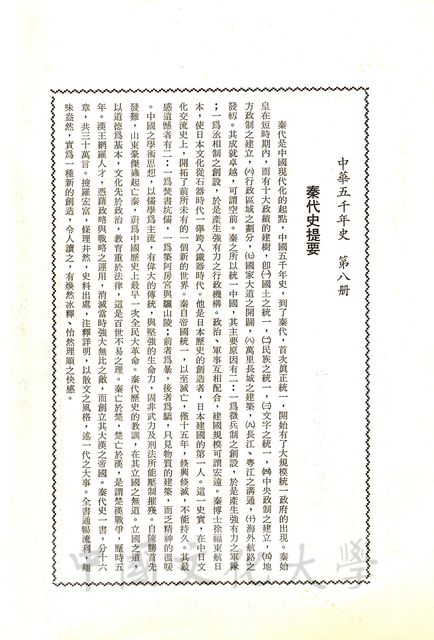 中華五千年史　第八册
秦代史提要
秦代是中國現代化的起點，中國五千年史，到了秦代，首次眞正統一，開始有了大規模統一政府的出現。秦始
皇在短時期內，而有十大政績的建樹，卽㈠國土之統一，㈡民族之統一，㈢文字之統一，㈣中央政制之建立，㈤地
方政制之建立，㈥行政區域之劃分，㈦國家大道之開闢，㈧萬里長城之建築，㈨長江、粵江之溝通，㈩海外航路之
發軔。其成就卓越，可謂空前。秦之所以統一中國，其主要原因有二：一爲徵兵制之創設，於是產生强有力之軍隊
；一爲丞相制之創設，於是產生强有力之行政機構。政治、軍事互相配合，建國規模可謂宏遠。秦博士徐福東航日
本，使日本文化從石器時代一舉跨入鐵器時代。他是日本歷史的創造者，日本建國的第一人。這一史實，在中日文
化交流史上，開拓了前所未有的一個新的世界。秦自帝國統一，以至滅亡，僅十五年，倏興倏滅，不能持久。其最
感遺憾者有二：一爲焚書坑儒，一爲築阿房宮與驪山陵；前者爲暴，後者爲驕，只見物質的建築，而乏精神的溫暖
。中國之學術思想，以儒學爲主流，有偉大的傳統，與堅強的生命力，固非武力及刑法所能壓制摧殘。自陳勝首先
發難，山東豪傑蠭起亡秦，蔚爲中國歷史上最早一次全民大革命。秦代歷史的教訓，在其立國之無道。立國之道，
以道德爲基本，文化先於政治，教育重於法律，這是百世不易之理。秦亡於楚，楚亡於漢，是謂楚漢戰爭，歷時五
年。漢王網羅人才，憑藉政略與戰略之運用，消滅當時強大無比之敵，而創立其大漢之帝國。秦代史一書，分十六
章，共三十萬言。搜羅宏富，條理井然，史料出處，注釋詳明，以散文之風格，述一代之大事。全書通暢流利，趣
味盎然，實爲一種新的創造，令人讀之，有渙然冰釋、怡然理順之快感。
中國文化大學